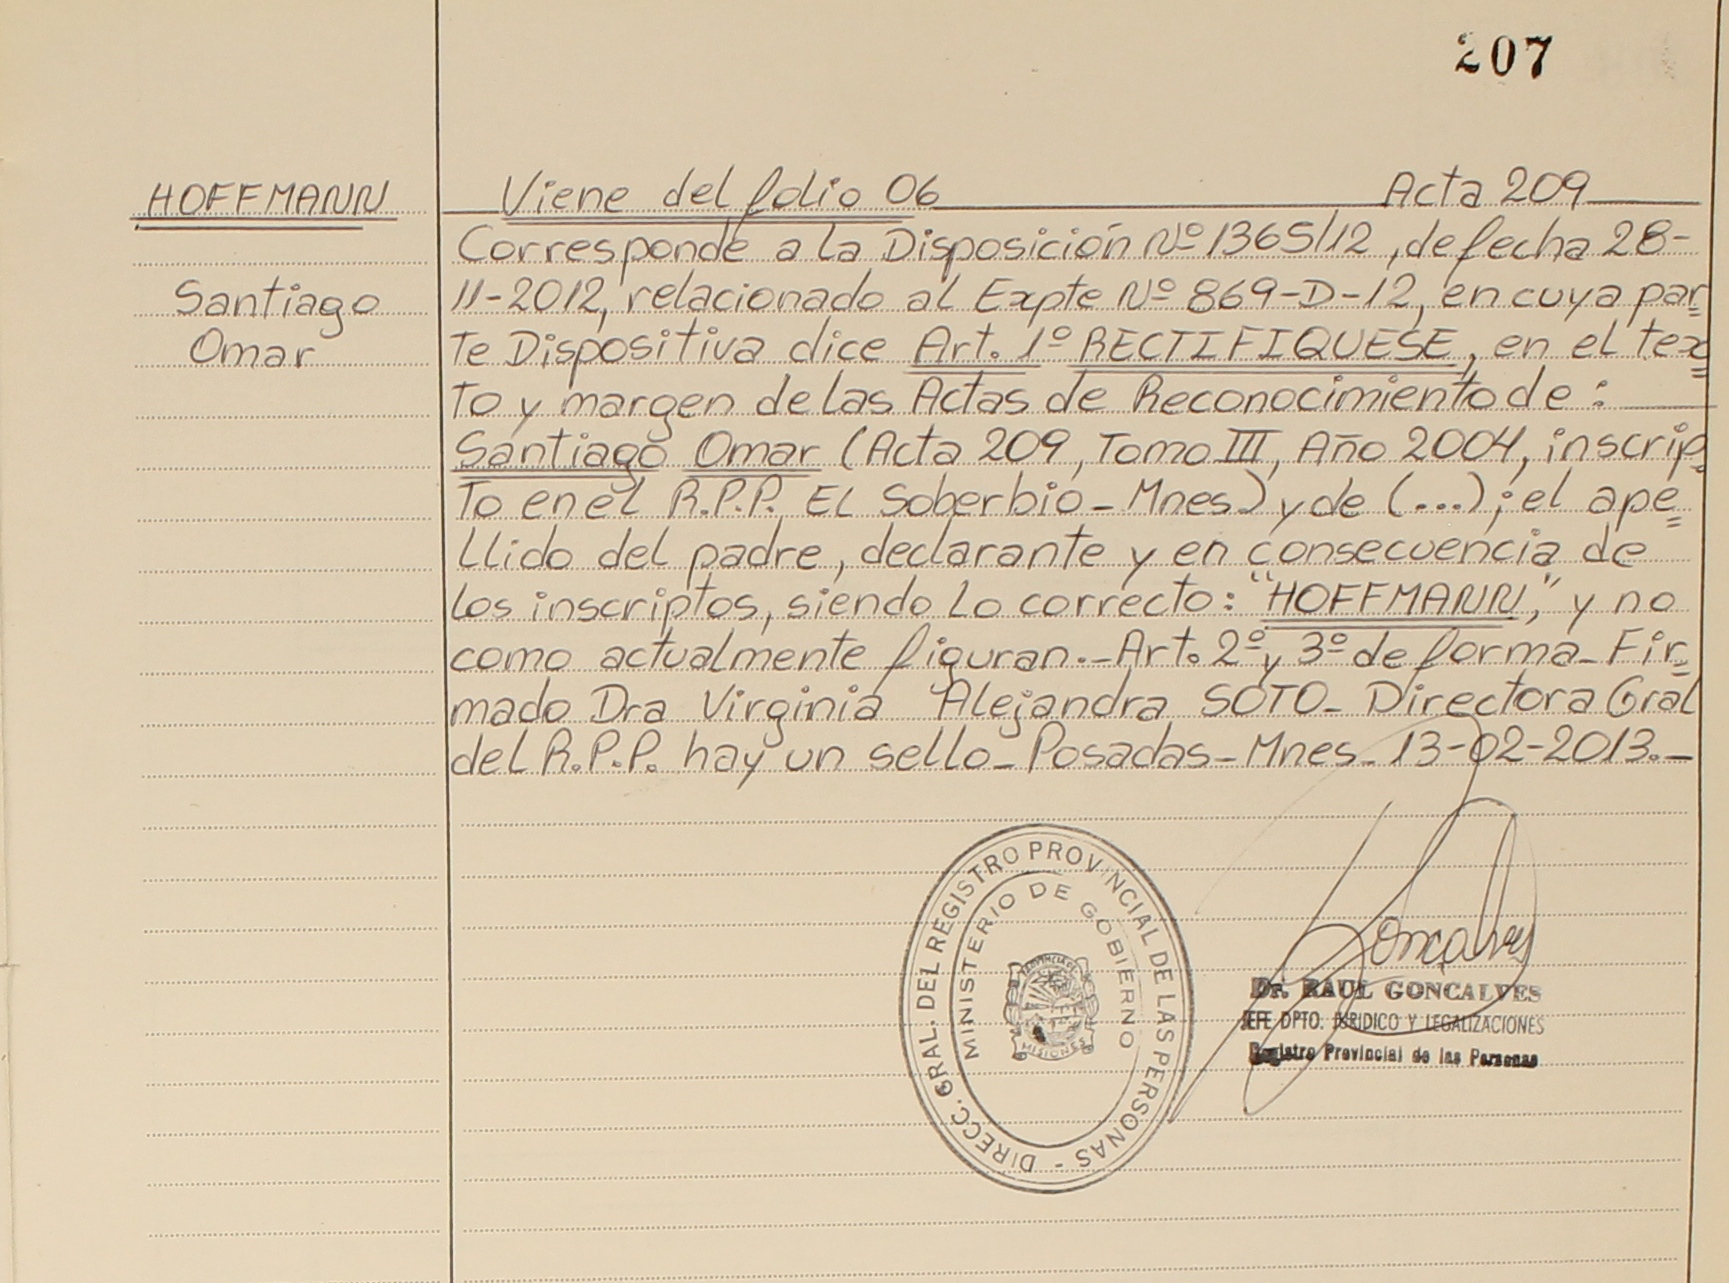 207
HOFFMANN
Santiago
Omar
Viene del folio 06 Acta 209
Corresponde a la Disposición Nº 1365/12, de fecha 28-
11-2012, relacionado al Expte Nº 869-D-12, en cuya par=
te Dispositiva dice Art. 1º RECTIFIQUESE, en el tex=
to y margen de las Actas de Reconocimiento de:
Santiago Omar (Acta 209, Tomo III, Año 2004, inscrip=
to en el R.P.P. EL Soberbio - Mnes) y de (...); el ape=
llido del padre, declarante y en consecuencia de
los inscriptos, siendo lo correcto: "HOFFMANN," y no
como actualmente figuran.- Art. 2º y 3º de forma - Fir=
mado Dra Virginia Alejandra SOTO - Directora Gral
del R.P.P. hay un sello - Posadas - Mnes - 13-02-2013.-
DIRECC. GRAL. DEL REGISTRO PROVINCIAL DE LAS PERSONAS -
MINISTERIO DE GOBIERNO
PROVINCIA DE
MISIONES
Goncalves
Dr. RAUL GONCALVES
JEFE DPTO. JURIDICO Y LEGALIZACIONES
Registro Provincial de las Personas